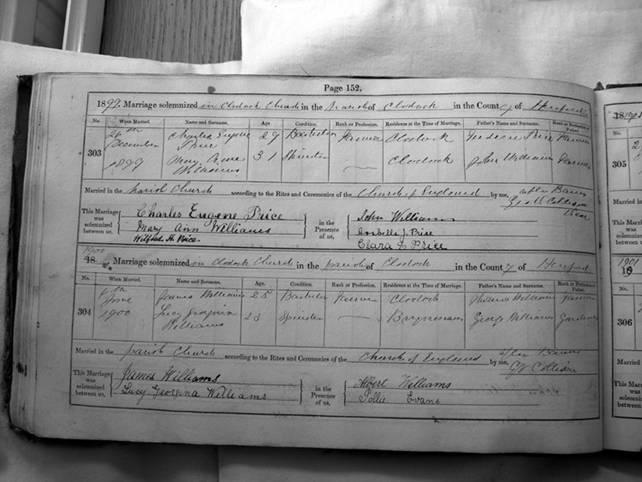 Page 152.
1899. Marriage solemnized in Clodock Church in the Parish of Clodock in the County of Hereford
No. When Married. Name and Surname. Age Condition. Rank or Profession. Residence at the Time of Marriage. Father's Name and Surname. Rank or Profession of Father.
303 26th December 1899 Charles Eugene Price 29 Bachelor Farmer Clodock Price Farmer
Mary Anne Williams 31 Spinster — Clodock John Williams Farmer
Married in the Parish Church according to the Rites and Ceremonies of the Church of England by me, after Banns
Vicar
This Marriage was solemnized between us,
Charles Eugene Price
Mary Ann Williams
Wilfred H. Price.
in the Presence of us,
John Williams
Price
Clara J. Price
1900
18 Marriage solemnized in Clodock Church in the parish of Clodock in the County of Hereford
No. When Married. Name and Surname. Age Condition. Rank or Profession. Residence at the Time of Marriage. Father's Name and Surname. Rank or Profession of Father.
304 June 1900 James Williams 25 Bachelor Farmer Clodock Williams Farmer
Lucy Georgina Williams 23 Spinster — George Williams
Married in the parish Church according to the Rites and Ceremonies of the Church of England by me, after Banns
This Marriage was solemnized between us,
James Williams
Lucy Georgina Williams
in the Presence of us,
Albert Williams
Pollie Evans
No.
305
1901
19
No.
306